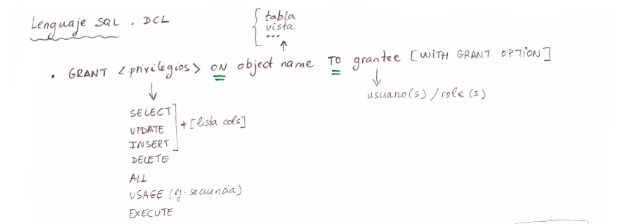 Lenguaje SQL. DCL
tabla
vista
...
• GRANT <privilegios> ON object name TO grantee [WITH GRANT OPTION]
usuario(s) / role(s)
SELECT
UPDATE + [lista cols]
INSERT
DELETE
ALL
USAGE (ej. secuencia)
EXECUTE